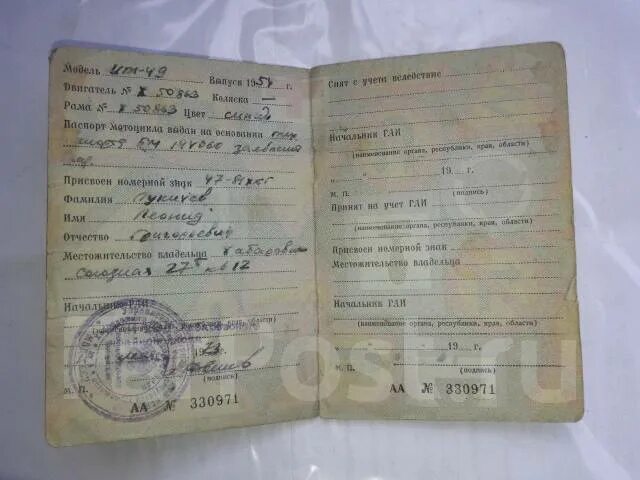 Модель ИЖ-49 Выпуск 195 г.
Двигатель № К 50863 Коляска —
Рама № К 50863 Цвет синий
Паспорт мотоцикла выдан на основании
БМ 194060
Присвоен номерной знак 47-81
Фамилия
Имя Леонид
Отчество Григорьевич
Местожительство владельца Хабаровск
Союзная 27 кв 12
Начальник ГАИ
(подпись)
м. п.
АА № 330971
Снят с учета вследствие
Начальник ГАИ
(наименование органа, республики, края, области)
„ “ 19 г.
м. п. (подпись)
Принят на учет ГАИ
(наименование органа, республики, края, области)
Присвоен номерной знак
Местожительство владельца
Начальник ГАИ
(наименование органа, республики, края, области)
„ “ 19 г.
м. п. (подпись)
АА № 330971